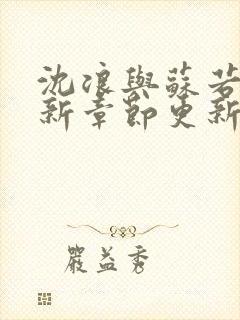 沈浪與蘇若
新章節更新
嚴益秀